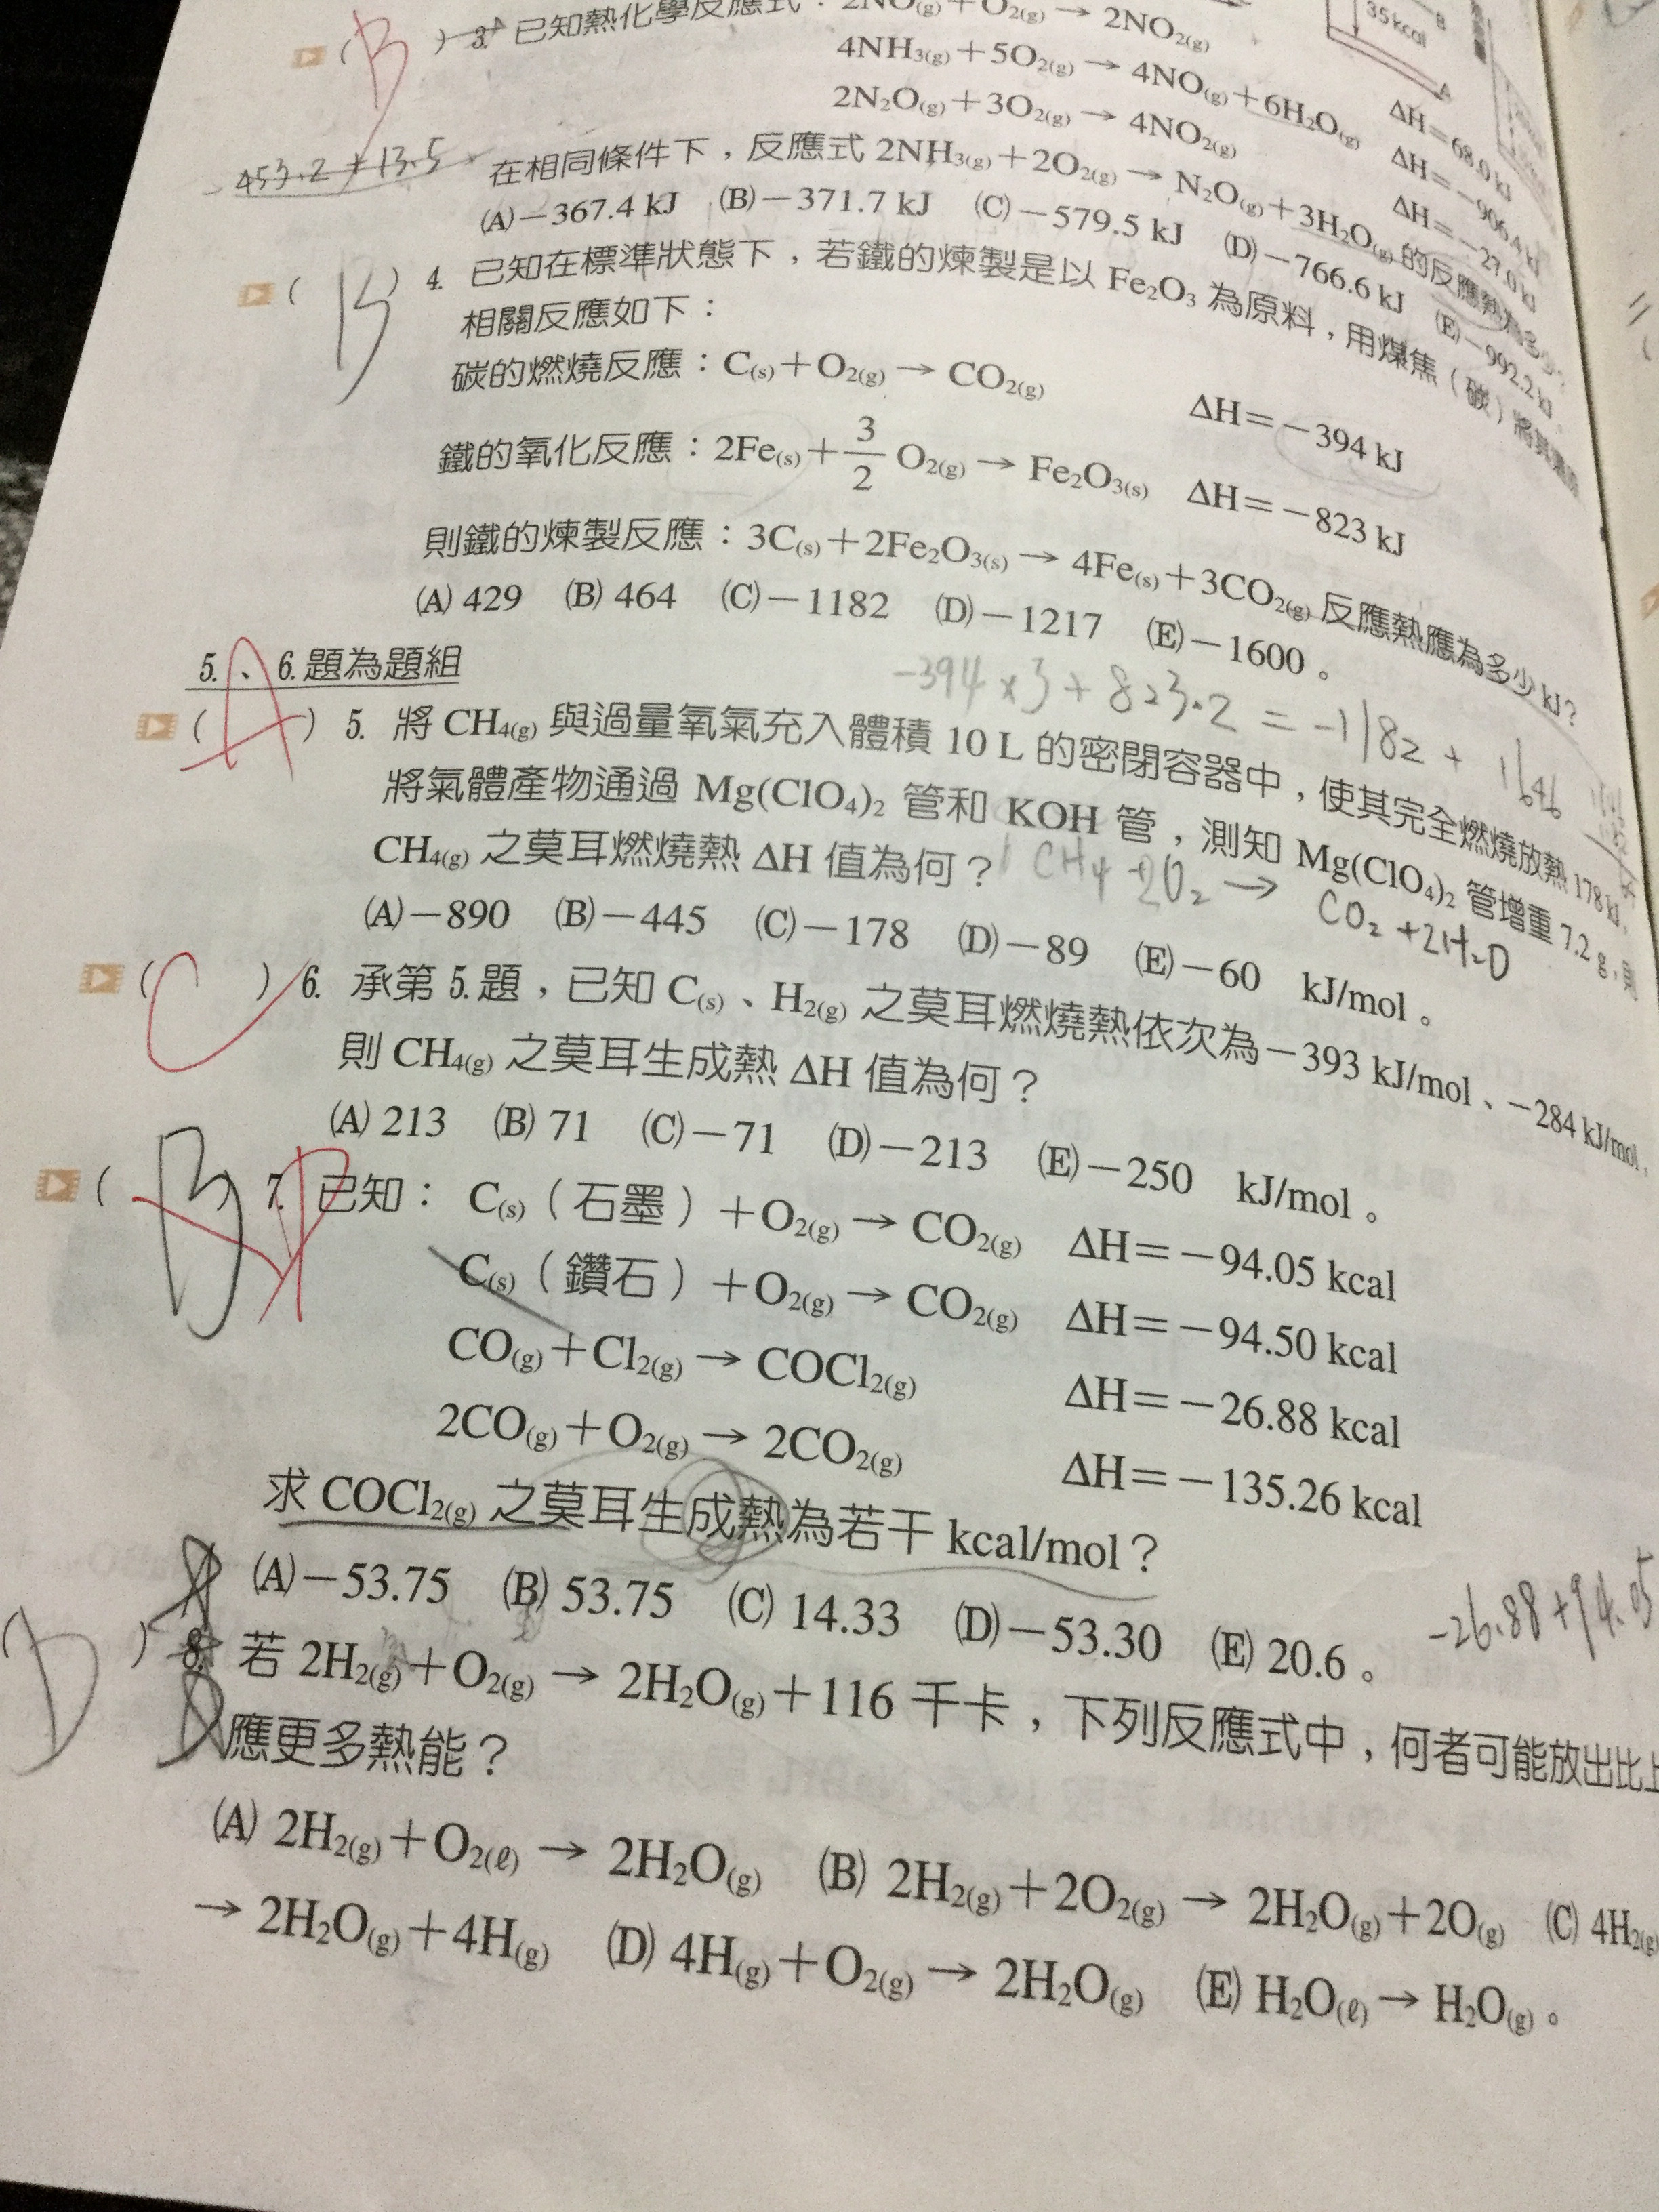 35 kcal
B
A
( B ) 3. 已知熱化學反應式：2NO(g)＋O₂(g) → 2NO₂(g) ΔH＝68.0 kJ
4NH₃(g)＋5O₂(g) → 4NO(g)＋6H₂O(g) ΔH＝－906.4 kJ
2N₂O(g)＋3O₂(g) → 4NO₂(g) ΔH＝－27.0 kJ
－453.2＋13.5
在相同條件下，反應式 2NH₃(g)＋2O₂(g) → N₂O(g)＋3H₂O(g) 的反應熱為多少？
(A)－367.4 kJ (B)－371.7 kJ (C)－579.5 kJ (D)－766.6 kJ (E)－992.2 kJ
( B ) 4. 已知在標準狀態下，若鐵的煉製是以 Fe₂O₃ 為原料，用煤焦（碳）將其
相關反應如下：
碳的燃燒反應：C(s)＋O₂(g) → CO₂(g) ΔH＝－394 kJ
鐵的氧化反應：2Fe(s)＋3/2 O₂(g) → Fe₂O₃(s) ΔH＝－823 kJ
則鐵的煉製反應：3C(s)＋2Fe₂O₃(s) → 4Fe(s)＋3CO₂(g) 反應熱應為多少 kJ？
(A) 429 (B) 464 (C)－1182 (D)－1217 (E)－1600。
-394×3+823.2=-1182+1646
5.、6.題為題組
( A ) 5. 將 CH₄(g) 與過量氧氣充入體積 10 L 的密閉容器中，使其完全燃燒放熱 178 kJ，
將氣體產物通過 Mg(ClO₄)₂ 管和 KOH 管，測知 Mg(ClO₄)₂ 管增重 7.2 g，則
CH₄(g) 之莫耳燃燒熱 ΔH 值為何？
CH₄+2O₂ → CO₂+2H₂O
(A)－890 (B)－445 (C)－178 (D)－89 (E)－60 kJ/mol。
( C ) 6. 承第 5.題，已知 C(s)、H₂(g) 之莫耳燃燒熱依次為－393 kJ/mol、－284 kJ/mol，
則 CH₄(g) 之莫耳生成熱 ΔH 值為何？
(A) 213 (B) 71 (C)－71 (D)－213 (E)－250 kJ/mol。
( B ) 7. 已知： C(s)（石墨）＋O₂(g) → CO₂(g) ΔH＝－94.05 kcal
C(s)（鑽石）＋O₂(g) → CO₂(g) ΔH＝－94.50 kcal
CO(g)＋Cl₂(g) → COCl₂(g) ΔH＝－26.88 kcal
2CO(g)＋O₂(g) → 2CO₂(g) ΔH＝－135.26 kcal
求 COCl₂(g) 之莫耳生成熱為若干 kcal/mol？
(A)－53.75 (B) 53.75 (C) 14.33 (D)－53.30 (E) 20.6。
-26.88+94.05
D ) 8. 若 2H₂(g)＋O₂(g) → 2H₂O(g)＋116 千卡，下列反應式中，何者可能放出比上
應更多熱能？
(A) 2H₂(g)＋O₂(ℓ) → 2H₂O(g) (B) 2H₂(g)＋2O₂(g) → 2H₂O(g)＋2O(g) (C) 4H₂(g)
→ 2H₂O(g)＋4H(g) (D) 4H(g)＋O₂(g) → 2H₂O(g) (E) H₂O(ℓ) → H₂O(g)。